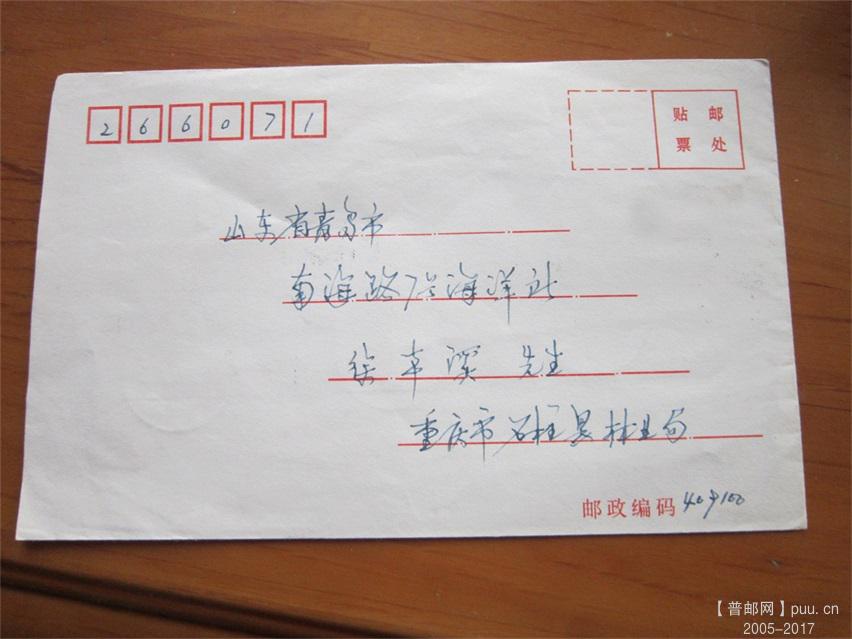 266071
贴邮
票处
山东省青岛市
南海路7号海洋所
先生
重庆市石柱县林业局
邮政编码 409100
【普邮网】puu.cn
2005-2017